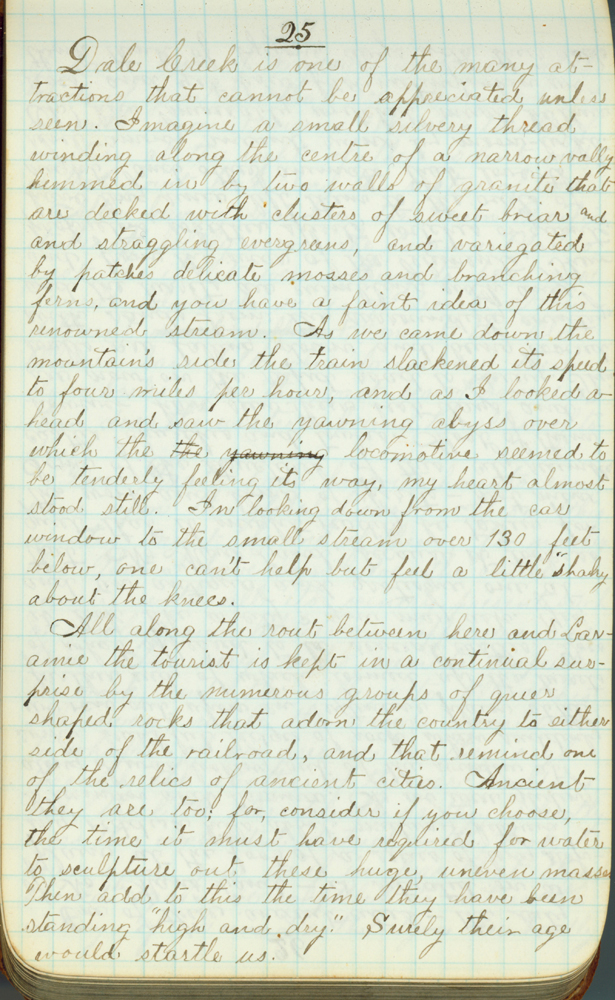 25
Dale Creek is one of the many at-
tractions that cannot be appreciated unless
seen. Imagine a small silvery thread
winding along the centre of a narrow vally
hemmed in by two walls of granite that
are decked with clusters of sweet briar and
and straggling evergreens, and variegated
by patches delicate mosses and branching
ferns, and you have a faint idea of this
renowned stream. As we came down the
mountain's side the train slackened its speed
to four miles per hour, and as I looked a-
head and saw the yawning abyss over
which the the yawning locomotive seemed to
be tenderly feeling its way, my heart almost
stood still. In looking down from the car
window to the small stream over 130 feet
below, one can't help but feel a little "shaky
about the knees.
All along the rout between here and Lar-
amie the tourist is kept in a continual sur-
prise by the numerous groups of queer
shaped rocks that adorn the country to either
side of the railroad, and that remind one
of the relics of ancient cities. Ancient
they are too; for, consider if you choose,
the time it must have required for water
to sculpture out these huge, uneven masses
Then add to this the time they have been
standing "high and dry." Surely their age
would startle us.